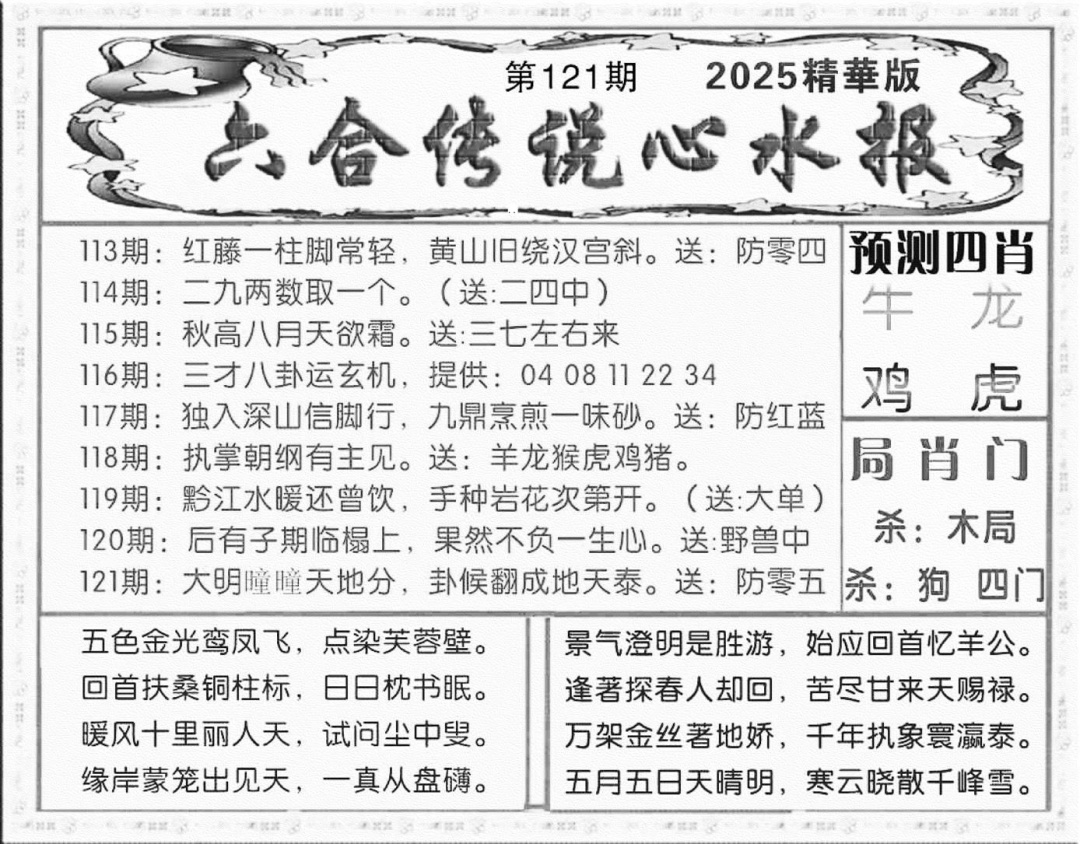 第121期 2025精華版
六合传说心水报
113期：红藤一柱脚常轻，黄山旧绕汉宫斜。送：防零四
114期：二九两数取一个。（送:二四中）
115期：秋高八月天欲霜。送:三七左右来
116期：三才八卦运玄机，提供：04 08 11 22 34
117期：独入深山信脚行，九鼎烹煎一味砂。送：防红蓝
118期：执掌朝纲有主见。送：羊龙猴虎鸡猪。
119期：黔江水暖还曾饮，手种岩花次第开。（送:大单）
120期：后有子期临榻上，果然不负一生心。送:野兽中
121期：大明曈曈天地分，卦候翻成地天泰。送：防零五
预测四肖
牛 龙
鸡 虎
局肖门
杀：木局
杀：狗 四门
五色金光鸾凤飞，点染芙蓉壁。
回首扶桑铜柱标，日日枕书眠。
暖风十里丽人天，试问尘中叟。
缘岸蒙笼出见天，一真从盘礴。
景气澄明是胜游，始应回首忆羊公。
逢著探春人却回，苦尽甘来天赐禄。
万架金丝著地娇，千年执象寰瀛泰。
五月五日天晴明，寒云晓散千峰雪。